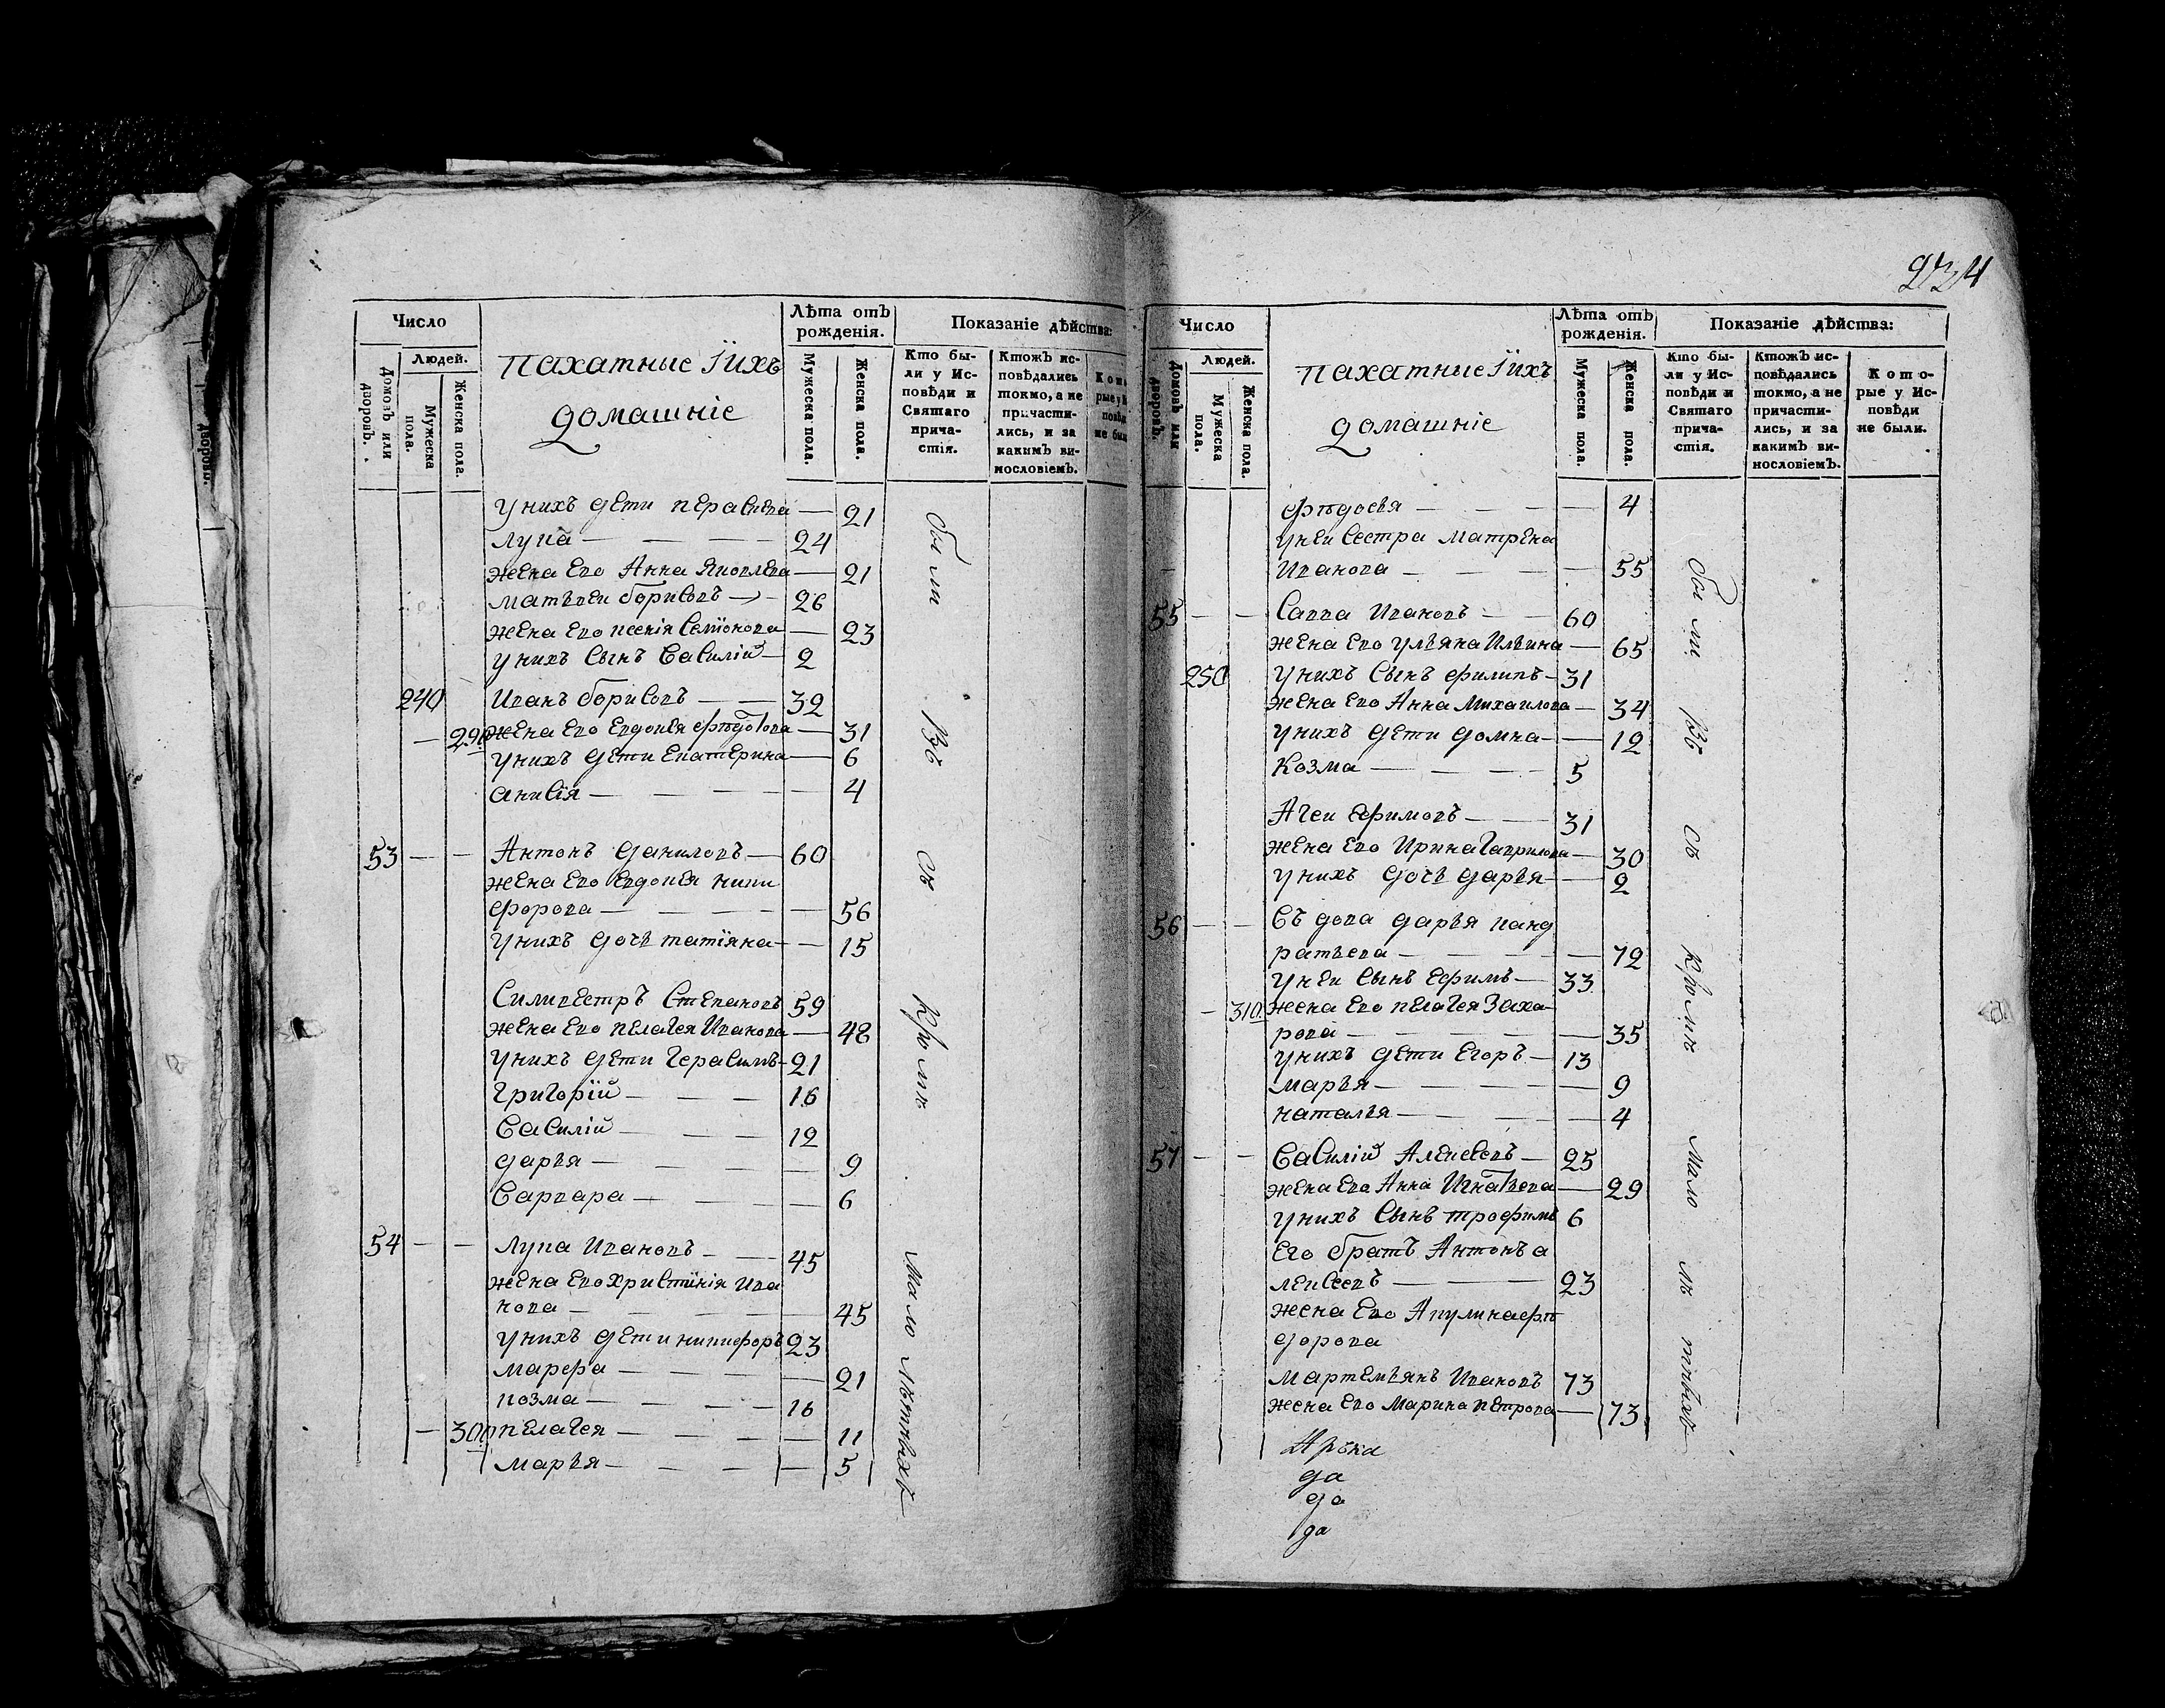 Число
Людей.
Домовъ или дворовъ.
Мужеска пола.
Женска пола.
Пахатные їихъ
домашнїе
Лѣта отъ рожденія.
Мужеска пола.
Женска пола.
Показаніе дѣйства:
Кто были у Исповѣди и Святаго причастія.
Ктожъ исповѣдались токмо, а не причастились, и за какимъ винословіемъ.
унихъ дети — 21
лупа — 24
жена его Анна Яковлева — 21
матвеи борисовъ — 26
жена его ксенія Семіонова — 23
унихъ сынъ Василій — 2
240 Иванъ борисовъ — 32
жена его Евдокея Ѳедотова — 31
унихъ дети Екатерина — 6
анисія — 4
53 — — Антонъ даниловъ — 60
жена его Евдокея ники
форова — 56
унихъ дочь татїяна — 15
Силивестръ Степановъ 59
жена его пелагея Иванова — 48
унихъ дети герасимъ — 21
григорїй — 16
Василій — 12
дарья — 9
Варвара — 6
54 — — Лупа Ивановъ — 45
жена его христинія Ива
нова — 45
унихъ дети никифоръ 23
марфа — 21
козма — 16
— 300 пелагея — 11
марья — 5
были въ съ мало лѣтныхъ
234
Число
Людей.
Домовъ или дворовъ.
Мужеска пола.
Женска пола.
Пахатные їихъ
домашнїе
Лѣта отъ рожденія.
Мужеска пола.
Женска пола.
Показаніе дѣйства:
Кто были у Исповѣди и Святаго причастія.
Ктожъ исповѣдались токмо, а не причастились, и за какимъ винословіемъ.
Которые у Исповѣди не были.
федосья — 4
унеи сестра матрена
Иванова — 55
55 — — Савва Ивановъ — 60
жена его ульяна Ильина — 65
250 унихъ сынъ филипъ — 31
жена его Анна Михаилова — 34
унихъ дети домна — 12
Козма — 5
Агеи Ефимовъ — 31
жена его Ирина гаврилова — 30
унихъ дочь дарья — 2
56 — — Въдова дарья канд
ратьева — 72
унеи сынъ Ефимъ — 33
— 310 жена его пелагея Заха
рова — 35
унихъ дети Егоръ — 13
марья — 9
наталья — 4
57 — — Василій Алексеевъ — 25
жена его Анна Игнатьева — 29
унихъ сынъ трофимъ 6
Его братъ Антонъ а
лексеевъ — 23
жена его Акулина фе
дорова
мартемьянъ Ивановъ 73
жена его Марина петрова — 73
да
да
да
были въ съ мало лѣтныхъ